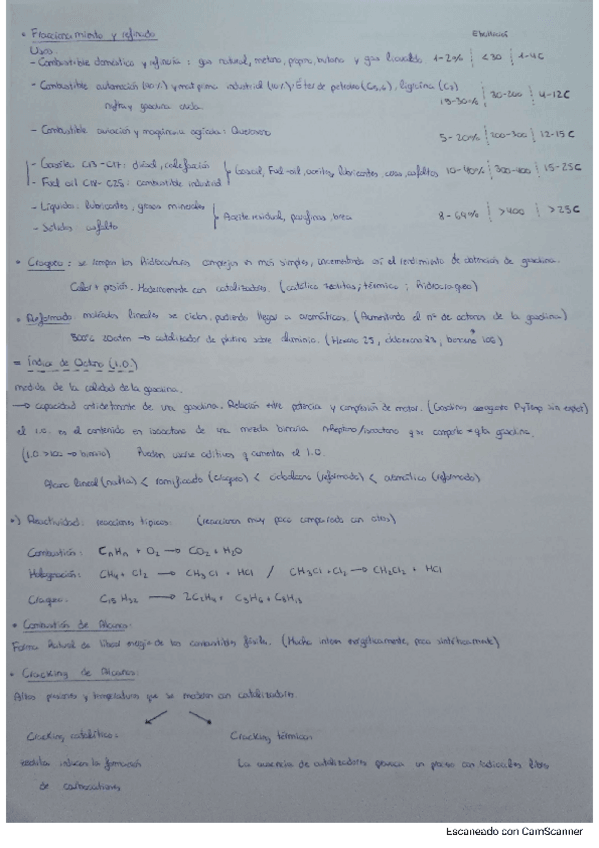 • Fraccionamiento y refinado
Ebullición
Usos
- Combustible doméstico y refinería: gas natural, metano, propano, butano y gas licuado 1-2% <30 1-4C
- Combustible automoción (90%) y mat prima industrial (10%): Éter de petróleo (C5,6), ligroína (C7)
nafta y gasolina cruda. 15-30% 30-200 4-12C
- Combustible aviación y maquinaria agrícola: Queroseno 5-20% 200-300 12-15C
- Gasóleo C13-C17: diésel, calefacción
- Fuel oil C18-C25: combustible industrial
Gasoil, Fuel-oil, aceites, lubricantes, ceras, asfaltos 10-40% 300-400 15-25C
- Líquidos: lubricantes, grasas minerales
- Sólidos: asfalto
Aceite residual, parafinas, brea 8-69% >400 >25C
• Craqueo: se rompen los hidrocarburos complejos en más simples, incrementando así el rendimiento de obtención de gasolina.
Calor + presión. Modernamente con catalizadores. (catálico zeolitas; térmico; hidrocraqueo)
• Reformado: moléculas lineales se ciclan, pudiendo llegar a aromáticos. (Aumentando el nº de octanos de la gasolina)
500°C 20atm → catalizador de platino sobre aluminio. (Hexano 25, ciclohexano 83, benceno 106)
= Índice de Octano (I.O.)
medida de la calidad de la gasolina.
→ capacidad antidetonante de una gasolina. Relación entre potencia y compresión de motor. (Gasolina aguante P y Temp sin explot)
el I.O. es el contenido en isooctano de una mezcla binaria n-heptano/isooctano q se comporta = q la gasolina.
(I.O >100 → benceno) Pueden usarse aditivos q aumenten el I.O.
Alcano lineal (nafta) < ramificado (craqueo) < cicloalcano (reformado) < aromático (reformado)
•) Reactividad: reacciones típicas: (reaccionan muy poco comparado con otros)
Combustión: CnHn + O2 → CO2 + H2O
Halogenación: CH4 + Cl2 → CH3Cl + HCl / CH3Cl + Cl2 → CH2Cl2 + HCl
Craqueo: C15H32 → 2C2H4 + C3H6 + C8H18
• Combustión de Alcanos:
Forma natural de liberar energía de los combustibles fósiles. (Mucho interés energéticamente, poco sintéticamente)
• Cracking de Alcanos:
Altas presiones y temperaturas que se moderan con catalizadores.
Cracking catalítico: Cracking térmico:
zeolitas inducen la formación La ausencia de catalizadores provoca un proceso con radicales libres
de carbocationes
Escaneado con CamScanner